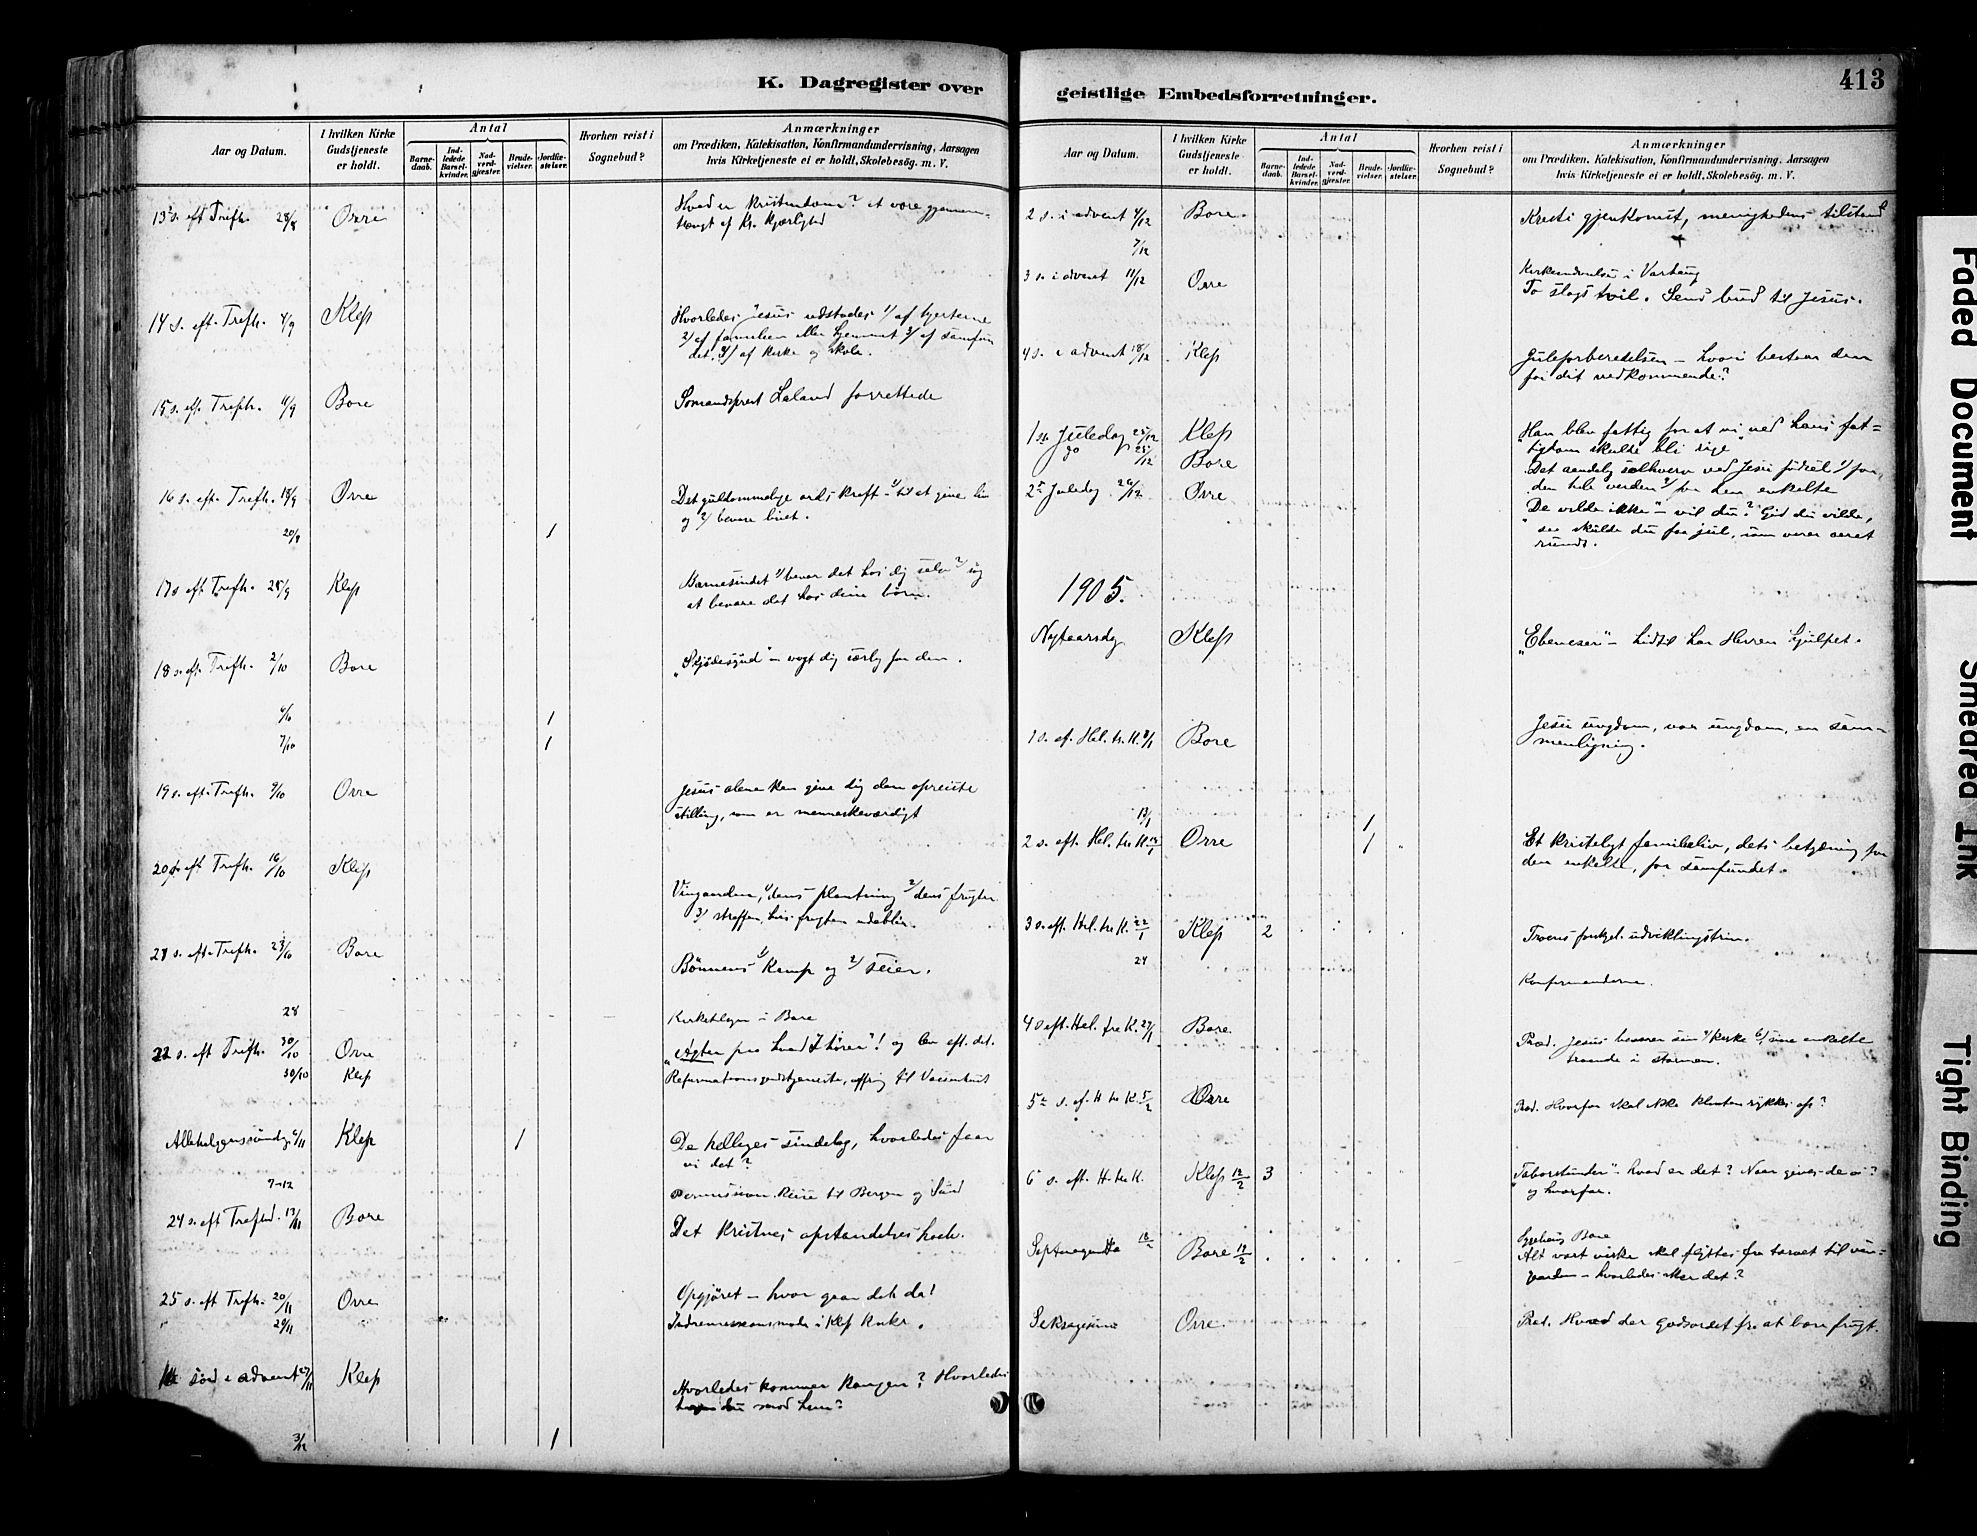 K. Dagregister over
Aar og Datum.
I hvilken Kirke Gudstjeneste er holdt.
Antal
Barnedaab.
Indledede Barselkvinder.
Nadverdgjæster.
Brudevielser.
Jordfæstelser.
Hvorhen reist i Sognebud?
Anmærkninger
om Prædiken, Katekisation, Konfirmandundervisning, Aarsagen
hvis Kirketjeneste ei er holdt, Skolebesøg. m. V.
13 s. eft Trefh. 28/8 Orre Hvad er kristendom? at være gjennem-
trængt af Kr. kjærlighed
14 s. eft. Trefh. 4/9 Klep Hvorledes Jesus udstødes 1/ af hjerterne
2/ af familien eller hjemmet 3/ af samfun
det. 4/ af kirke og skole.
15 s. eft. Trefh. 11/9 Bore Sømandsprest Laland forrettede
16 s. eft. Trefh. 18/9 Orre Det guddommelige ords kraft 1/ til at give liv
og 2/ bevare livet.
20/9 1
17 s eft Trefh. 25/9 Klep Barnesindet 1/ bevar det hos dig selv 2/ søg
at bevare det hos dine børn.
18 s. eft. Trefh. 2/10 Bore "Skjødesynd" – vogt dig særlig for den.
6/10 1
7/10 1
19 s. eft. Trefh. 9/10 Orre Jesus alene kan give dig den opreiste
stilling, som er menneskeværdigt
20 s. eft Trefh. 16/10 Klep
Vingaarden, 1/ dens plantning 2/ dens frugter
3/ straffen, hvis frugten udebliver.
21 s. eft. Trefh. 23/10 Bore
Bønnens 1/ kamp og 2/ seier.
28 i Bore
22 s. eft Trefh. 30/10 Orre "Agter paa hvad I hører"! og lev eft. det.
30/10 Klep Reformationsgudstjeneste, offring til
Allehelgenssøndag 6/11 Klep 1 De helliges sindelag, hvorledes faar
vi det?
7–12 Permission. Reise til Bergen og Sund
24 s. eft Trefh. 13/11 Bore Det kristnes opstandelses haab.
25 s. eft Trefh. 20/11 Orre Opgjøret – hvor gaar det da!
29/11 Indremissionsmøde i Klep Kirke.
1ste sønd i advent 27/11 Klep Hvorledes kommer kongen? Hvorledes
du mod ham?
3/12 1
geistlige Embedsforretninger.
413
Aar og Datum.
I hvilken Kirke Gudstjeneste er holdt.
Antal
Barnedaab.
Indledede Barselkvinder.
Nadverdgjæster.
Brudevielser.
Jordfæstelser.
Hvorhen reist i Sognebud?
Anmærkninger
om Prædiken, Katekisation, Konfirmandundervisning, Aarsagen
hvis Kirketjeneste ei er holdt, Skolebesøg. m. V.
2 s. i advent 4/12 Bore. Kristi gjenkomst, menighedens tilstand
7/12
Kirkeindvielse i Varhaug
3 s. i advent 11/12 Orre To slags tvil. Send bud til Jesus.
4 s. i advent 18/12 Klep Juleforberedelsen – hvori bestaar den
for dit vedkommende?
1ste Juledag 25/12 Klep "Han blev fattig for at vi ved hans fat-
tigdom skulde bli rige"
do 25/12 Bore Det aandelig solhverv ved Jesu fødsel 1/ for
den hele verden 2/ for den enkelte
2den Juledag 26/12 Orre "De vilde ikke" – vil du? Gid du vilde,
saa skulde du faa jul, som varer aaret
rundt.
1905.
Nytaarsdag Klep "Ebeneser" – hidtil har Herren hjulpet.
1 s. ef. Hel. tr. K. 8/1 Bore Jesu ungdom, vor ungdom, en sam-
menligning.
13/1 1
2 s. eft. Hel. tre K 15/1 Orre 1 Et kristeligt familieliv, dets betydning for
den enkelte, for samfundet.
3 s. eft. Hel. tre K. 22/1 Klep 2 Troens forskjel. udviklingstrin.
24 Konfirmanderne.
4 s eft. Hel. tre K. 29/1 Bore. Præd. Jesus bevarer sin a/ kirke b/ sine enkelte
troende i stormen.
5te s. ef. H tre K. 5/2 Orre Præd. Hvorfor skal ikke klinten rykkes op?
6 s. eft. H. tre K. Klep 12/2 3 "Taborstunder" – hvad er det? Naar gives de os?
og hvorfor.
18/2 Bore
Septuagesima Bore 19/2 Alt vort virke skal flyttes fra torvet til vin-
gaarden – hvorledes sker det?
Seksagesima Orre. Præd. Hvad der godsordet fra at bære frugt.
Faded Document
Smeared Ink
Tight Binding